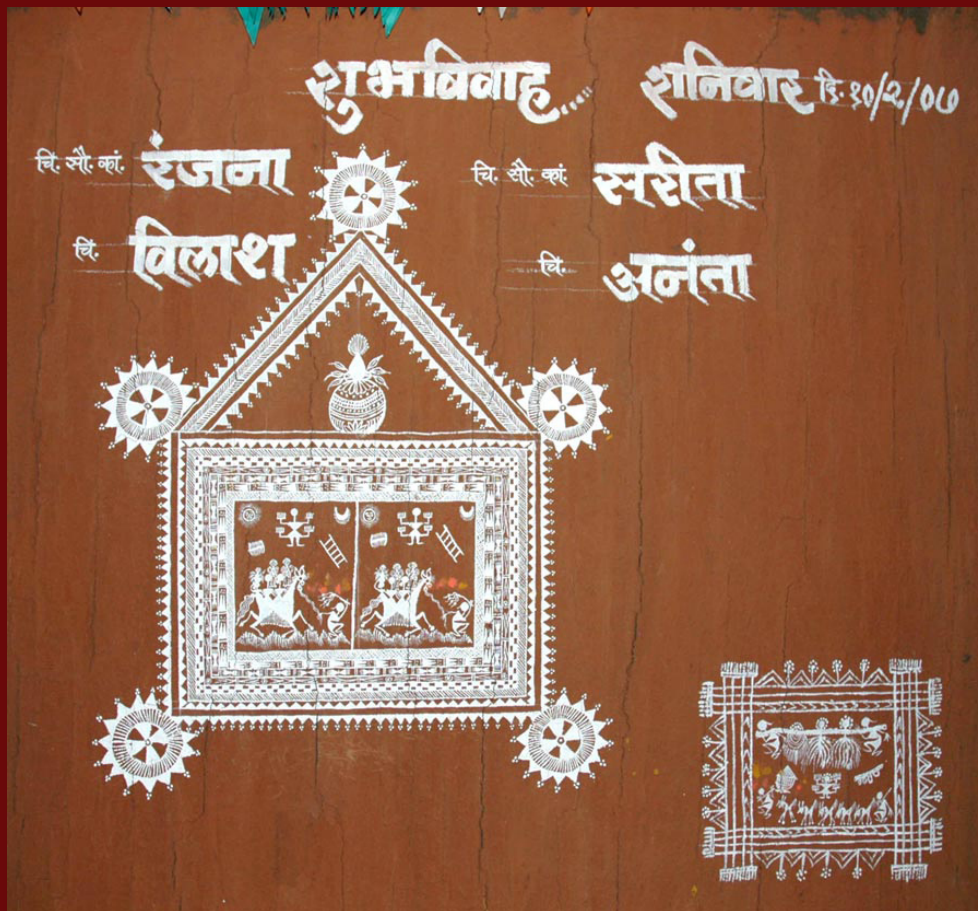 शुभविवाह..... शनिवार दि. १०/२/०७
चि. सौ. कां. रंजना
चि. विलाश
चि. सौ. कां. सरीता
चि. अनंता